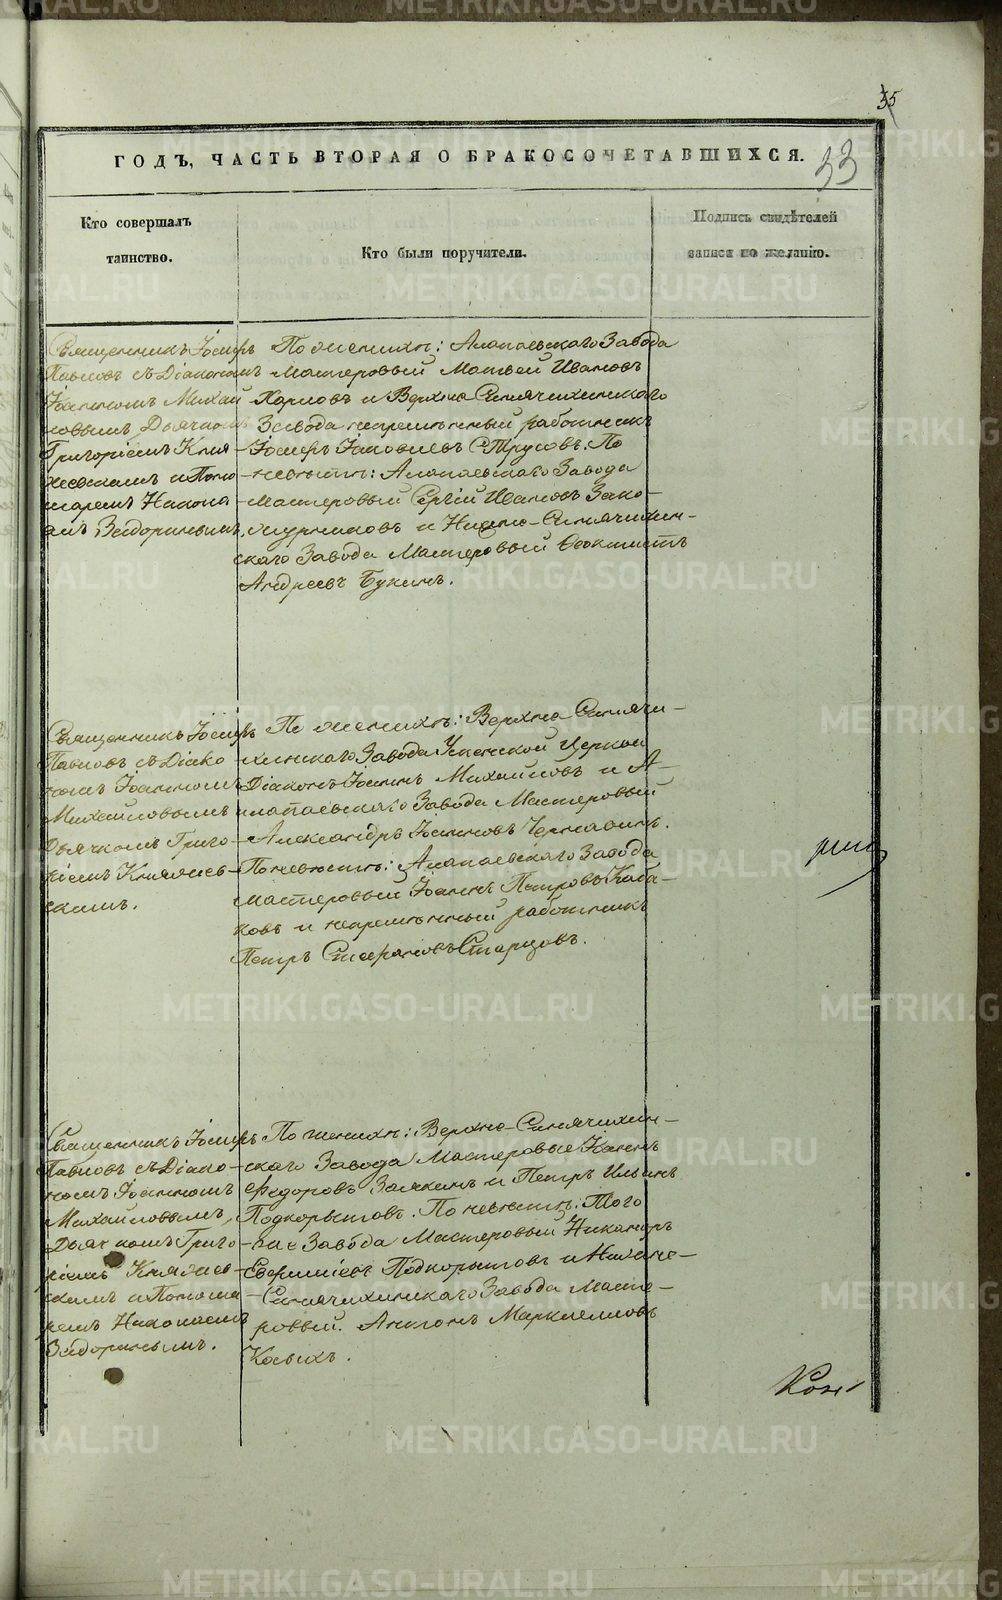 35
ГОДЪ, ЧАСТЬ ВТОРАЯ О БРАКОСОЧЕТАВШИХСЯ.
33
Кто совершалъ
таинство.
Кто были поручители.
Подпись свидѣтелей
записи по желанію.
Священникъ Іосифъ
Павловъ съ Діакономъ
Іоанномъ Михай
ловымъ Дьячкомъ
Григоріемъ Княжевскимъ и Поно
маремъ
Задоринымъ.
По женихѣ: Алапаевскаго Завода
мастеровый Матвей Ивановъ
и Верхно Синячихинскаго
Завода непремѣнный работникъ
Іосифъ Іаковлевъ Трусовъ. По
невѣстѣ: Алапаевскаго Завода
мастеровый Сергій Ивановъ Зако-
журниковъ и Нижне-Синячихин-
скаго Завода Мастеровый Ѳеоктистъ
Андреевъ Букинъ.
Священникъ Іосифъ
Павловъ съ Діако
номъ Іоанномъ
Михайловымъ и
Дьячкомъ Григо
ріемъ Княжев-
скимъ.
По женихѣ: Верхно Синячи-
хинскаго Завода Успенской Церкви
Діаконъ Іоаннъ Михайловъ и А-
лапаевскаго Завода Мастеровый
Александръ Іоанновъ Чернавинъ.
По невѣстѣ: Алапаевскаго Завода
мастеровый Іоаннъ Петровъ Каба-
ковъ и непремѣнный работникъ
Петръ Стефановъ Старцовъ.
Священникъ Іосифъ
Павловъ съ Діако-
номъ Іоанномъ
Михайловымъ,
Дьячкомъ Григо-
ріемъ Княжев-
скимъ и Понома
ремъ
Задоринымъ.
По женихѣ: Верхно-Синячихин-
скаго Завода Мастеровые Іоаннъ
Федоровъ Заякинъ и Петръ Ильинъ
Подкорытовъ. По невѣстѣ: Того
же Завода Мастеровый Никаноръ
Подкорытовъ и Нижне-
Синячихинскаго Завода Масте-
ровый. Антонъ Маркелловъ
Косыхъ.
METRIKI.GASO-URAL.RU